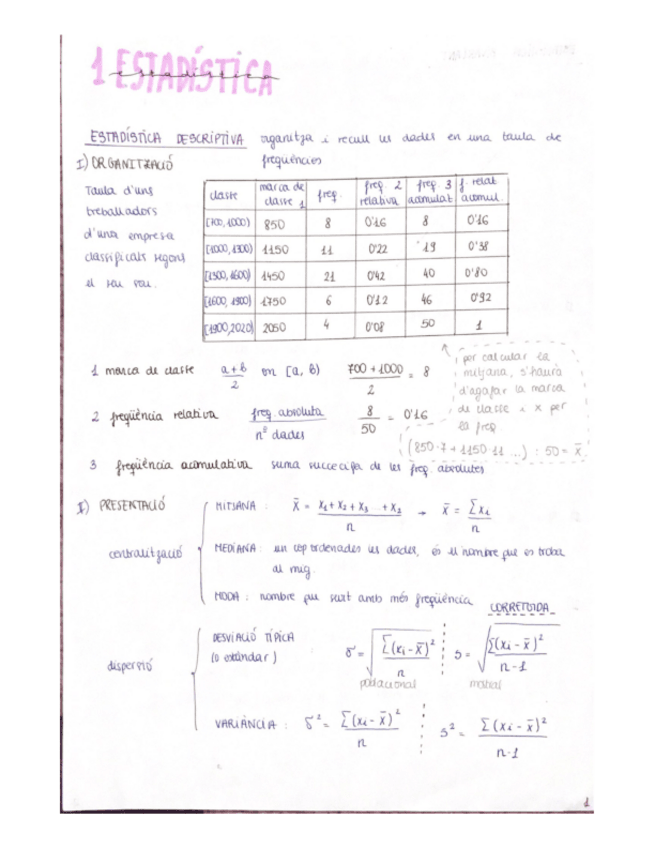 1 ESTADÍSTICA
estadística
ESTADÍSTICA DESCRIPTIVA organitza i recull les dades en una taula de
freqüències
I) ORGANITZACIÓ
Taula d'uns
treballadors
d'una empresa
classificats segons
el seu sou.
classe | marca de classe 1 | freq. | freq 2 relativa | freq 3 acumulat | f. relat acumul.
[700, 1000) | 850 | 8 | 0'16 | 8 | 0'16
[1000, 1300) | 1150 | 11 | 0'22 | 19 | 0'38
[1300, 1600) | 1450 | 21 | 0'42 | 40 | 0'80
[1600, 1900) | 1750 | 6 | 0'12 | 46 | 0'92
[1900, 2020) | 2050 | 4 | 0'08 | 50 | 1
1 marca de classe (a+b)/2 en [a, b) (700 + 1000)/2 = 8
per calcular la
mitjana, s'haurà
d'agafar la marca
de classe i x per
la freq
(850·7 + 1150·11 ...) : 50 = x̄
2 freqüència relativa freq. absoluta / nº dades 8/50 = 0'16
3 freqüència acumulativa suma de les freq. absolutes
I) PRESENTACIÓ
centralització
MITJANA : x̄ = (x₁ + x₂ + x₃ ... + x₂)/n → x̄ = Σx₁/n
MEDIANA : un cop ordenades les dades, és el nombre que es troba
al mig.
MODA : nombre que surt amb més freqüència
CORRETGIDA
dispersió
DESVIACIÓ TÍPICA
(o estàndar)
σ = √(Σ(xi - x̄)²/n) S = √(Σ(xi - x̄)²/(n-1))
poblacional mostral
VARIÀNCIA : σ² = Σ(xi - x̄)²/n S² = Σ(xi - x̄)²/(n-1)
1